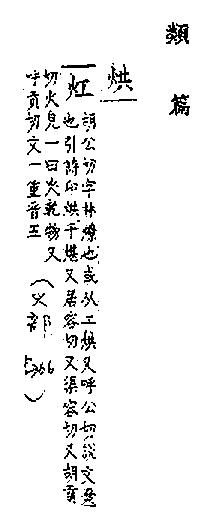 類篇
烘
灴
訶公切字林燎也或从工烘又呼公切說文
也引詩卬烘于煁又居容切又渠容切又胡貢
切火皃一曰火乾物又
呼貢切文一重音五
(火部
)